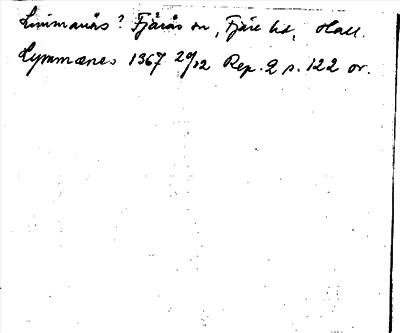 Limmanäs? Fjärås sn, Fjäre hd, Hall.
Lymmænes 1367 20/12 Rep. 2 s. 122 or.